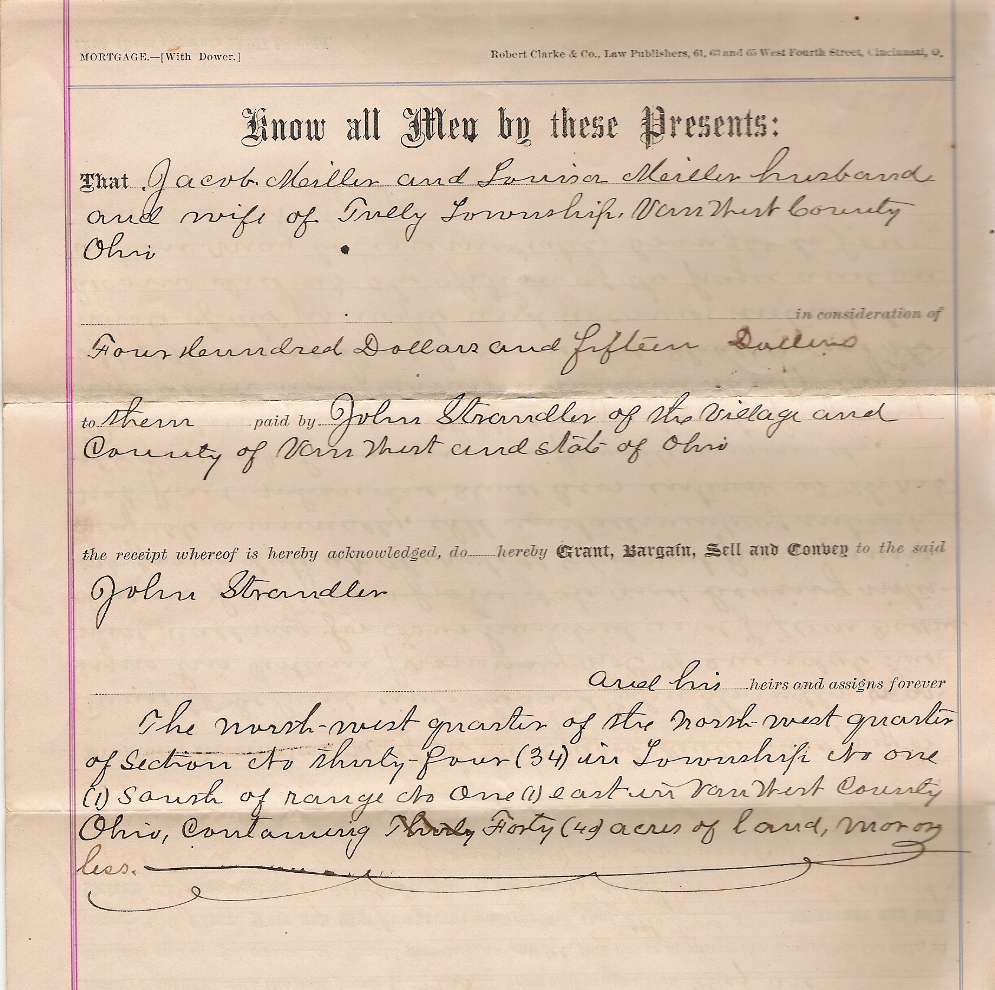 MORTGAGE.—[With Dower.] Robert Clarke & Co., Law Publishers, 61, 63 and 65 West Fourth Street, Cincinnati, O.
Know all Men by these Presents:
That Jacob Meiller and Louisa Meiller husband
and wife of Tully Township, Van Wert County
Ohio
in consideration of
Four Hundred Dollars and fifteen Dollars
to them paid by John Strandler of the Village and
County of Van Wert and state of Ohio
the receipt whereof is hereby acknowledged, do hereby Grant, Bargain, Sell and Convey to the said
John Strandler
and his heirs and assigns forever
The north-west quarter of the north-west quarter
of Section No thirty-four (34) in Township No one
(1) South of range No One (1) east in Van Wert County
Ohio, Containing Thirty Forty (40) acres of land, mor or
less.